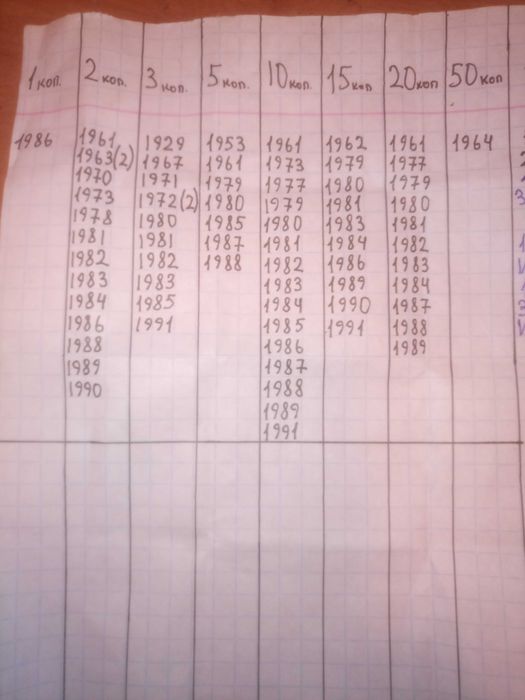 1 коп. 2 коп. 3 коп. 5 коп. 10 коп. 15 коп 20 коп 50 коп
1986 1961 1929 1953 1961 1962 1961 1964
1963(2) 1967 1961 1973 1979 1977
1970 1971 1979 1977 1980 1979
1973 1972(2) 1980 1979 1981 1980
1978 1980 1985 1980 1983 1981
1981 1981 1987 1981 1984 1982
1982 1982 1988 1982 1986 1983
1983 1983 1983 1989 1984
1984 1985 1984 1990 1987
1986 1991 1985 1991 1988
1988 1986 1989
1989 1987
1990 1988
1989
1991